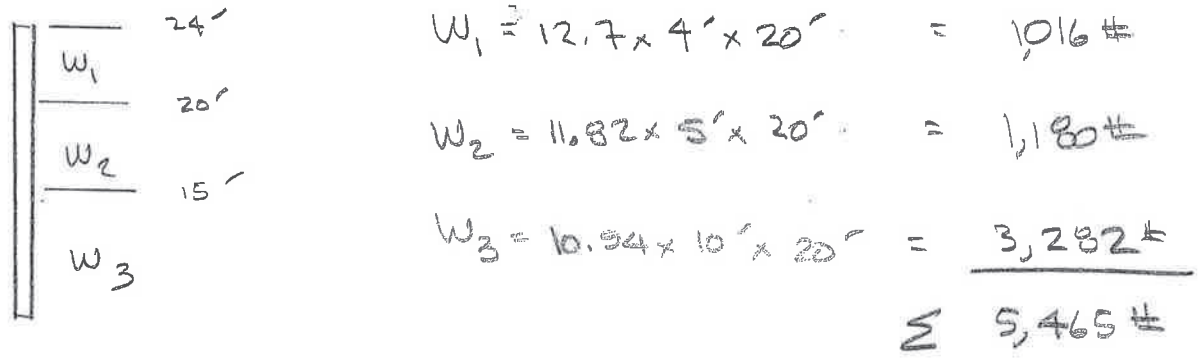 24'
W₁
20'
W₂
15'
W₃
W₁ = 12.7 x 4' x 20' = 1,016 #
W₂ = 11.82 x 5' x 20' = 1,180 #
W₃ = 10.94 x 10' x 20' = 3,282 #
Σ 5,465 #